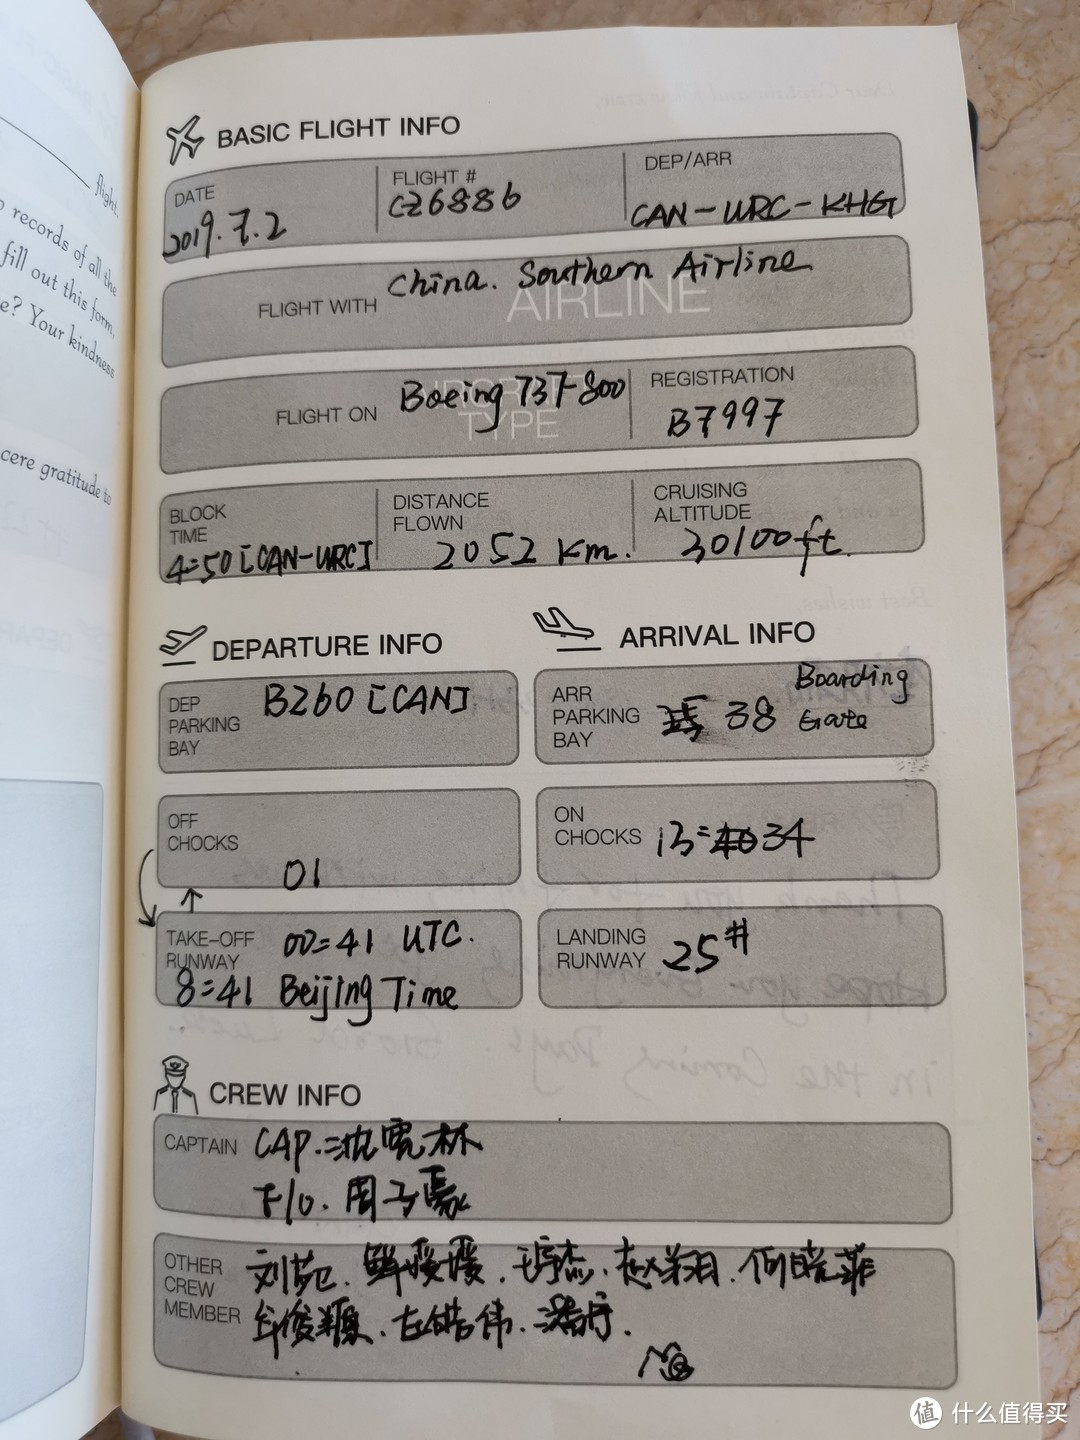 flight.
records of all the
fill out this form,
e? Your kindness
cere gratitude to
BASIC FLIGHT INFO
DATE
2019.7.2
FLIGHT #
CZ6886
DEP/ARR
CAN-URC-KHG
FLIGHT WITH
China. Southern Airline
AIRLINE
FLIGHT ON
Boeing 737-800
TYPE
REGISTRATION
B7997
BLOCK
TIME
4:50 [CAN-URC]
DISTANCE
FLOWN
2052 km.
CRUISING
ALTITUDE
30100ft.
DEPARTURE INFO
DEP
PARKING
BAY
B260 [CAN]
OFF
CHOCKS
01
TAKE-OFF
RUNWAY
00:41 UTC.
8:41 Beijing Time
ARRIVAL INFO
ARR
PARKING
BAY
38 Boarding
Gate
ON
CHOCKS
13:34
LANDING
RUNWAY
25#
CREW INFO
CAPTAIN
CAP.
F/O. 周子
OTHER
CREW
MEMBER
刘苑. 鲜媛媛. 赵翔. 何晓菲
值 什么值得买